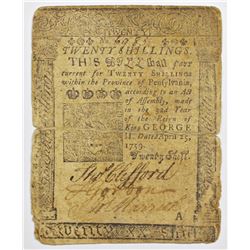 TWENTY SHILLINGS.
THIS BILL shall pass
current for TWENTY SHILLINGS
within the Province of Pennsylvania,
according to an Act
of Assembly, made
in the 32d Year
of the Reign of
King GEORGE
II. Dated April 25,
1759.
Twenty Shill.
Tho Clifford
A